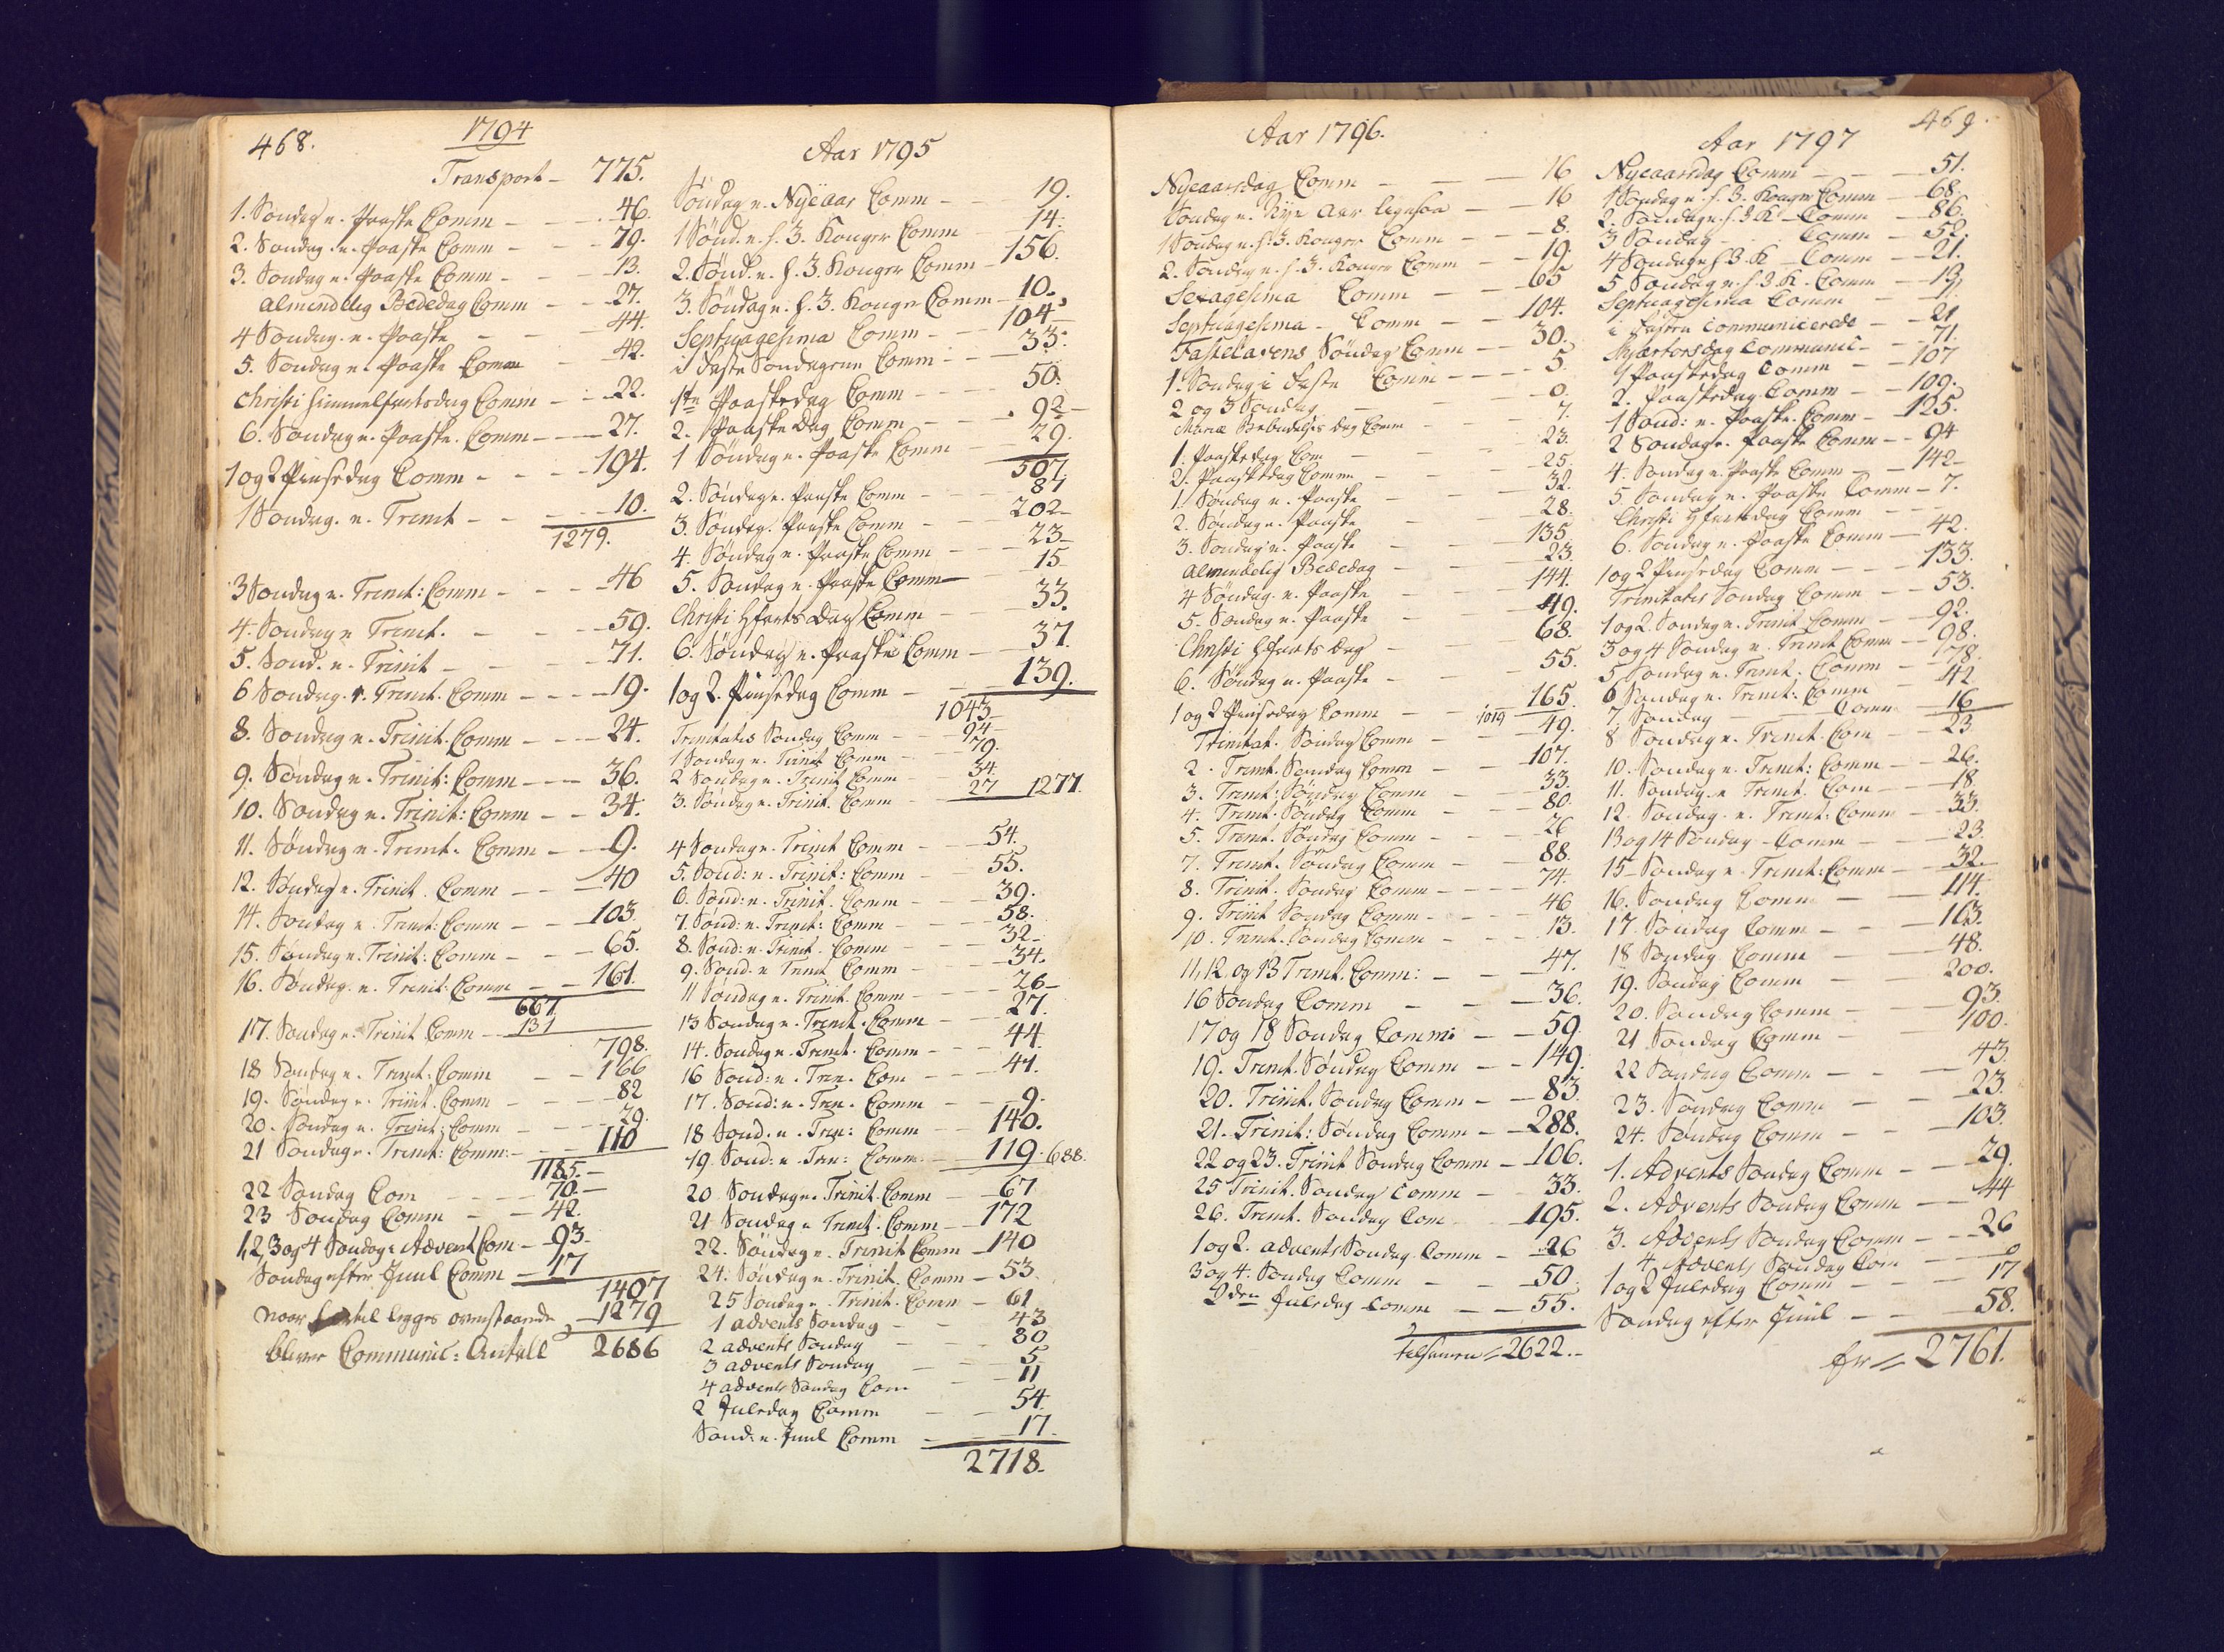 468.
1794
Transport - 775.
1. Søndag e. Paaske Comm - - - 46.
2. Søndag e. Paaske Comm - - - 79.
3. Søndag e. Paaske Comm - - - 13.
Almindelig Bededag Comm - - 27.
4 Søndag e. Paaske - - - 44.
5. Søndag e. Paaske Comm - 42.
Christi Himmelfartsdag Comm - - 22.
6. Søndag e. Paaske. Comm - - - 27.
1 og 2 Pinsedag Comm - - - 194.
1 Søndag. e. Trinit - - - - 10.
1279.
3 Søndag e. Trinit: Comm - - - 46
4. Søndag e Trinit. - - - 59.
5. Sønd. e. Trinit - - - - 71.
6 Søndag. e. Trinit. Comm - - - - 19.
8. Søndag e. Trinit. Comm - - - 24.
9. Søndag e. Trinit: Comm - - - 36.
10. Søndag e. Trinit: Comm - - 34.
11. Søndag e. Trinit. Comm - - 9.
12. Søndag e. Trinit. Comm - - - 40
14. Søndag e. Trinit: Comm - - 103.
15. Søndag e. Trinit: Comm - - - 65.
16. Søndag. e. Trinit: Comm - - 161.
667
17. Søndag e. Trinit Comm - - 131
798.
18 Søndag e. Trinit. Comm - - 166
19. Søndag e. Trinit. Comm - - - 82
20. Søndag e. Trinit: Comm - - - 29.
21 Søndag e. Trinit: Comm: - - - 110
1185. -
22 Søndag Com - - - 70. -
23 Søndag Comm - - 42.
1, 2, 3 og 4 Søndag i Advent Com - 93.
Søndag efter Juul Comm - 17
1407
naar hertil legges ovenstaaende - 1279
bliver Communic: Antall 2686
Aar 1795
Søndag e. Nyeaar Comm - - - 19.
1 Sønd. e. h. 3. Konger Comm - - 14.
2. Sønd. e. h. 3. Konger Comm - 156.
3. Søndag e. h. 3. Konger Comm - 10.
Septuagesima Comm - - - 104
i Faste Søndagene Comm - - - 33.
1ste Paaskedag Comm - - - 50.
2. Paaske Dag Comm - - - 92 -
1 Søndag e. Paaske Comm - - 29.
507.
2. Søndag e. Paaske Comm - - 87
3. Søndag. Paaske Comm - - 202 -
4. Søndag e. Paaske Comm - - 23 -
5. Søndag e. Paaske Comm - 15
Christi Hfarts Dag Comm - 33.
6. Søndag e. Paaske Comm - - 37.
1 og 2. Pinsedag Comm - - 139.
1043
Trinitatis Søndag Comm - - 94 -
1 Søndag e. Trinit Comm - 79.
2 Søndag e. Trinit Comm - 34.
3. Søndag e. Trinit. Comm - 27 1277.
4 Søndag e. Trinit Comm - - 54.
5. Sønd: e. Trinit: Comm - - 55.
6. Sønd: e. Trinit. Comm - - 39.
7. Sønd: e. Trinit: Comm - - 58.
8. Sønd: e. Trinit. Comm - - 32 -
9. Sønd. e Trinit Comm - - 34.
11 Søndag e. Trinit. Comm - - - 26 -
13 Søndag e. Trinit. Comm - - 27.
14. Søndag e. Trinit. Comm - - - 44.
16 Sønd: e. Trin. Com - - - 44.
17. Sønd: e. Trin. Comm - - 9.
18 Sønd. e. Trin: Comm - - 140.
19. Sønd: e. Trin: Comm. - - 119. 688.
20 Søndag e. Trinit. Comm - - 67
21 Søndag e Trinit. Comm - - 172
22. Søndag e. Trinit Comm - 140
24. Søndag e. Trinit. Comm - 53.
25 Søndag e. Trinit. Comm - 61
1 Advents Søndag - - 43
2 Advents Søndag - - 80
3 Advents Søndag - - 5
4 Advents Søndag Com - - 11
2 Juledag Comm - - 54.
Sønd: e. Juul Comm - - 17.
2718.
469.
Aar 1796.
Nyeaarsdag Comm - - - 16
Søndag e. Nye Aar ligesaa - - 16
1 Søndag e. h. 3. Konger Comm - - - 8.
2. Søndag e. h. 3. Konger Comm - - 19.
Sexagesima Comm - - 65
Septuagesima - Comm - - 104.
Fastelavens Søndag Comm - - 30.
1. Søndag i Faste Comm - - - - 5.
2 og 3 Søndag - - - 0.
Mariæ Bebudelses dag Comm - - 7.
1. Paaskedag Com - - - 23.
2. Paaskedag Comm - - - 25.
1. Søndag e. Paaske - - - 32.
2. Søndag e. Paaske - - 28.
3. Søndag e. Paaske - - 135
Almindelig Bededag - - - 23
4 Søndag. e. Paaske - - 144.
5. Søndag e. Paaske - - 49.
Christi Hfarts dag - - 68.
6. Søndag e. Paaske - - - 55.
1 og 2 Pinsedag Comm - - 165.
1019
Trinitat. Søndag Comm - - 49.
2. Trinit. Søndag Comm - - 107.
3. Trinit: Søndag Comm - - 33.
4. Trinit. Søndag Comm - - 80.
5. Trinit. Søndag Comm - - - 26
7. Trinit. Søndag Comm - - 88.
8. Trinit. Søndag Comm - - - - 74.
9. Trinit Søndag Comm - - - 46
10. Trinit. Søndag Comm - - - 13.
11, 12. og 13 Trinit. Comm: - - - 47.
16 Søndag Comm - - - 36.
17 og 18 Søndag Comm: - - 59.
19. Trinit. Søndag Comm - - 149.
20. Trinit. Søndag Comm - - 83.
21. Trinit: Søndag Comm - - 288.
22 og 23. Trinit Søndag Comm - 106.
25 Trinit. Søndag Comm - 33.
26. Trinit. Søndag Com 195.
1 og 2. Advents Søndag. Comm - 26
3 og 4. Søndag Comm - - 50.
2den Juledag Comm - - 55.
tilsamen = 2622. -
Aar 1797
Nyeaarsdag Comm - - - 51.
1 Søndag e. h. 3. Konger Comm - 68.
2. Søndag e. h. 3. K - Comm - 86.
3 Søndag - Comm - 52.
4 Søndag e. h. 3. K - Comm - 21.
5 Søndag e. h. 3. K. Comm - 13
Septuagesima Comm - -
i Fasten Communicerede - - 21
Skjærtorsdag Communic - - 71.
1 Paaskedag Comm - - 107
2. Paaskedag Comm - - 109.
1 Sønd: e. Paaske. Comm - 125.
2 Søndag e. Paaske Comm - - 94
4. Søndag e. Paaske Comm - - 142 -
5 Søndag e. Paaske Comm - 7.
Christi Hfarts dag Comm - -
6. Søndag e. Paaske Comm - 42.
1 og 2 Pinsedag Comm - - - 133.
Trinitatis Søndag Comm - - 53.
1 og 2. Søndag e. Trinit Comm - - 92.
3 og 4 Søndag e. Trinit Comm - 98.
5 Søndag e. Trinit. Comm - 178.
6 Søndag e. Trinit: Comm - 42
7. Søndag - Comm - 16
8 Søndag e. Trinit. Com - - 23
10. Søndag e. Trinit: Comm - - 26.
11. Søndag e Trinit. Com - - 18.
12. Søndag. e. Trinit. Comm - 33.
13 og 14 Søndag - Comm - - 23.
15 - Søndag e. Trinit: Comm - - 32.
16. Søndag Comm - - 44.
17. Søndag Comm - - - 163.
18 Søndag Comm - - 48.
19. Søndag Comm - - 200.
20. Søndag Comm - - 93.
21 Søndag Comm - 100.
22 Søndag Comm - - - 43.
23. Søndag Comm - - 23.
24. Søndag Comm - - 103.
1. Advents Søndag Comm - - 29.
2. Advents Søndag Comm - - 44
3. Advents Søndag Comm - - 26
4. Advents Søndag Com - 0
1 og 2 Juledag Comm - - - 17
Søndag efter Juul - - 58.
er = 2761.